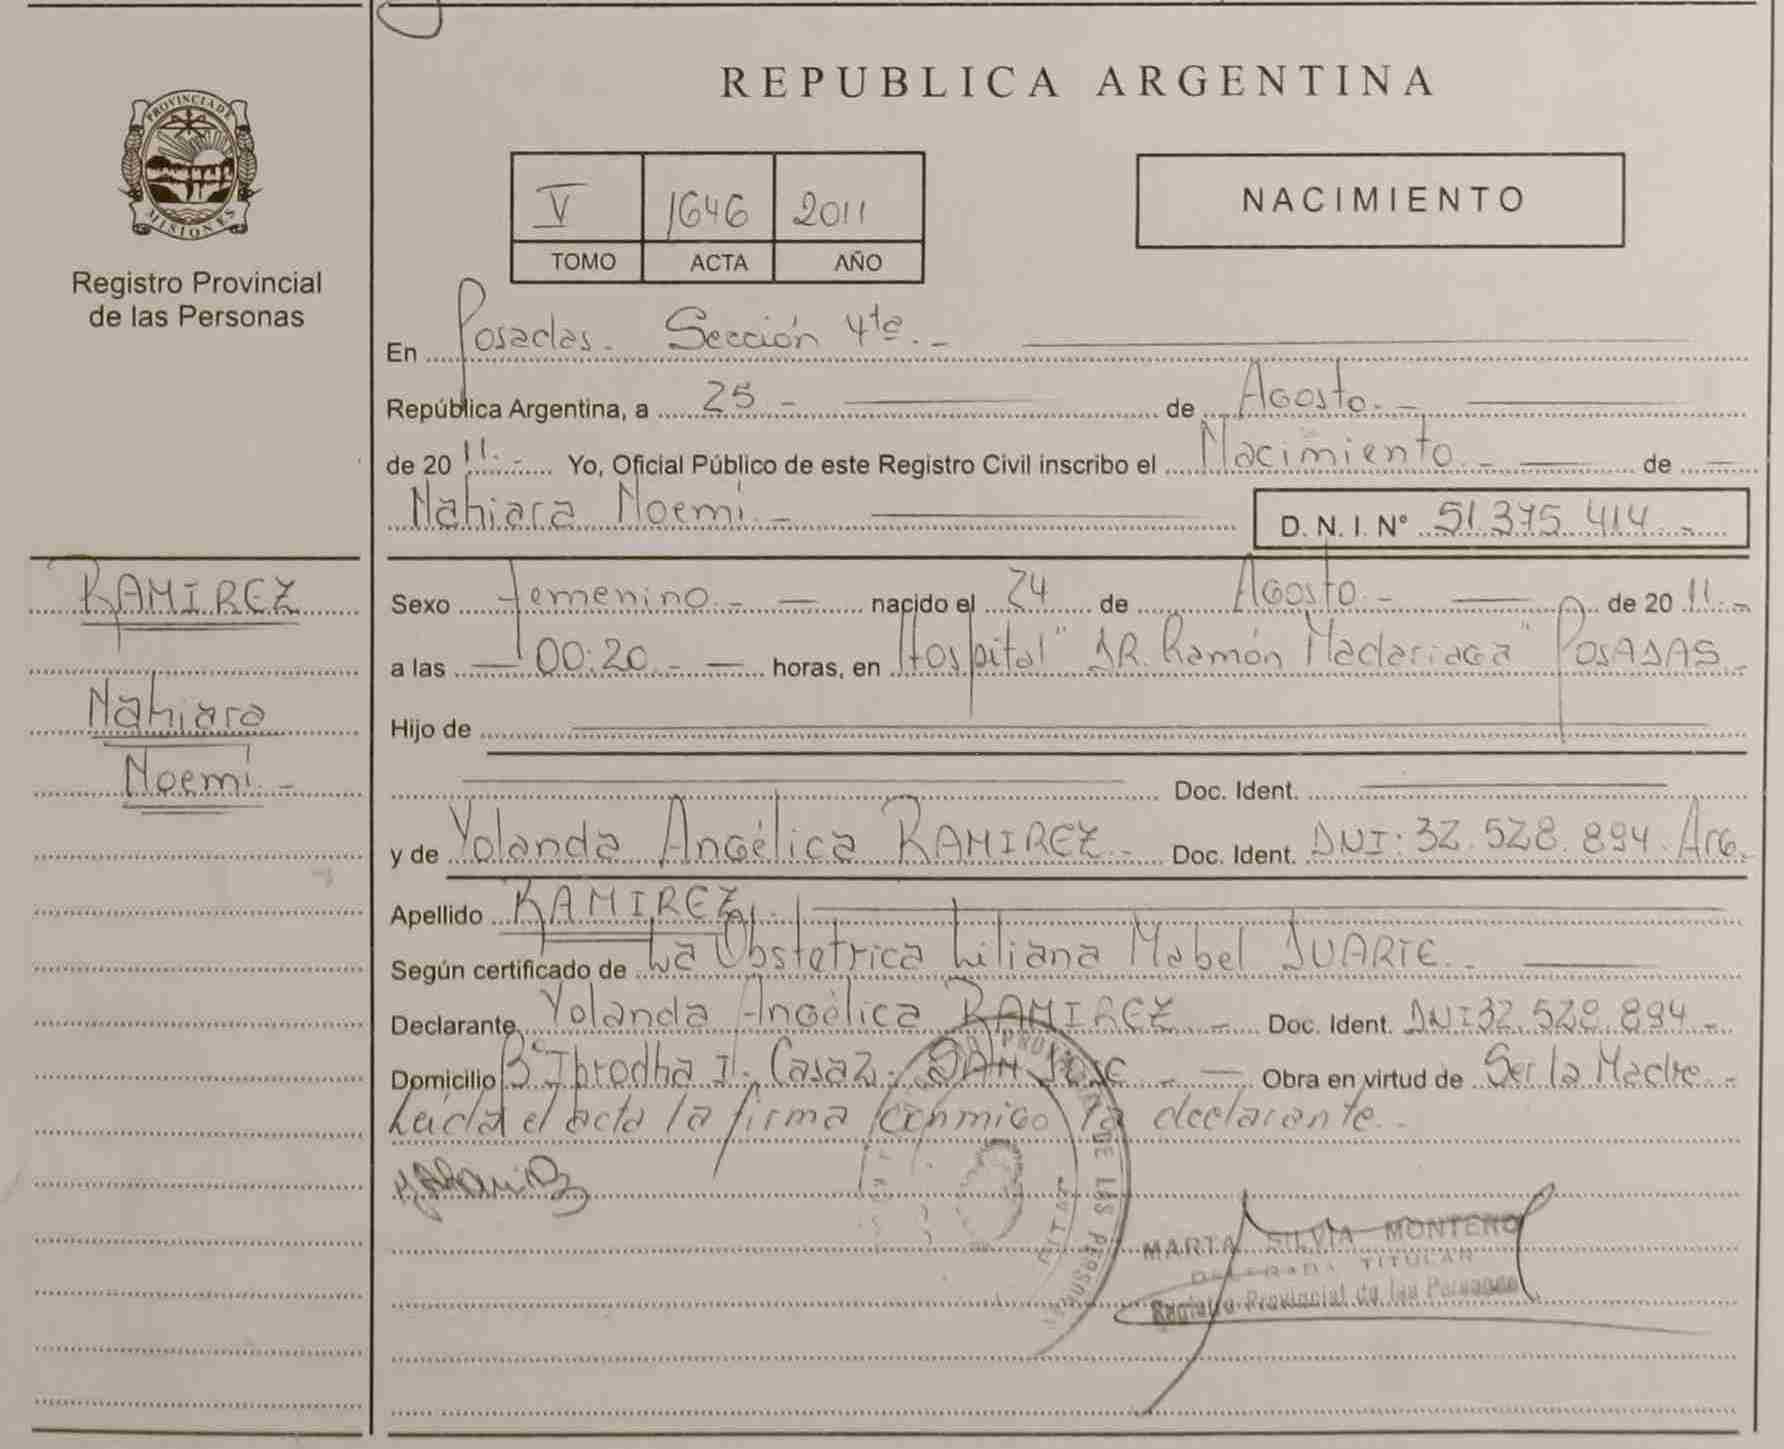 REPUBLICA ARGENTINA
PROVINCIA DE
MISIONES
Registro Provincial
de las Personas
V 1646 2011
TOMO ACTA AÑO
NACIMIENTO
En Posadas. Sección 4ta.-
República Argentina, a 25 - de Agosto.-
de 2011.- Yo, Oficial Público de este Registro Civil inscribo el Nacimiento - de
Nahiara Noemí.- D. N. I. Nº 51.375.414.-
RAMIREZ
Nahiara
Noemí.-
Sexo femenino.- nacido el 24 de Agosto.- de 2011.-
a las 00:20.- horas, en Hospital "DR. Ramón Madariaga" POSADAS.-
Hijo de
Doc. Ident.
y de Yolanda Angélica RAMIREZ.- Doc. Ident. DNI: 32.528.894. Arg.
Apellido RAMIREZ.
Según certificado de La Obstetrica Liliana Mabel DUARTE.-
Declarante Yolanda Angélica RAMIREZ - Doc. Ident. DNI 32.528.894.-
Domicilio Bº I. Casa 2. SAN - Obra en virtud de Ser la Madre.-
Leída el acta la firma conmigo la declarante.-
DE LAS PERSONAS
MARTA SILVIA MONTERO
DELEGADA TITULAR
Registro Provincial de las Personas